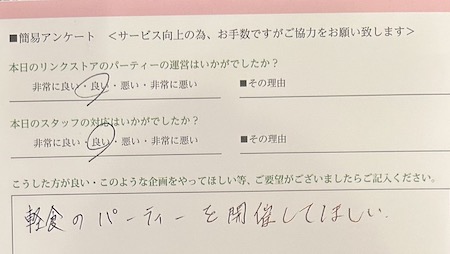 ■簡易アンケート <サービス向上の為、お手数ですがご協力をお願い致します>
本日のリンクストアのパーティーの運営はいかがでしたか？
非常に良い・良い・悪い・非常に悪い ■その理由
本日のスタッフの対応はいかがでしたか？
非常に良い・良い・悪い・非常に悪い ■その理由
こうした方が良い・このような企画をやってほしい等、ご要望がございましたらご記入ください。
軽食のパーティーを開催してほしい.